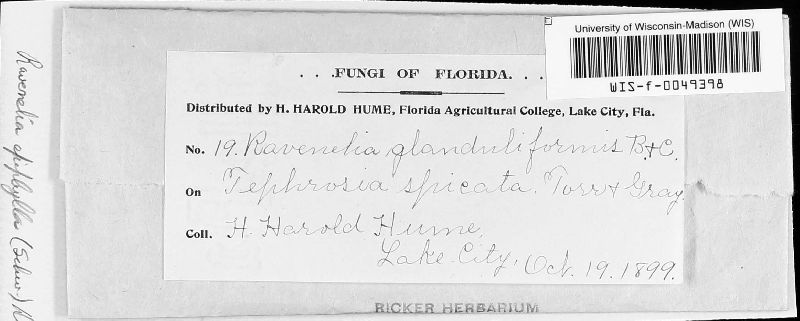 University of Wisconsin-Madison (WIS)
WIS-f-0049398
. . .FUNGI OF FLORIDA. . .
Distributed by H. HAROLD HUME, Florida Agricultural College, Lake City, Fla.
No. 19. Ravenelia glanduliformis B.&C.
On Tephrosia spicata. Torr & Gray.
Coll. H. Harold Hume,
Lake City, Oct. 19. 1899.
RICKER HERBARIUM
Ravenelia epiphylla (Schw.)